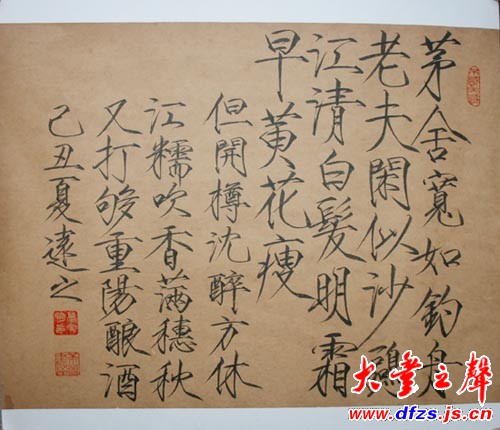 茅舍寬如釣舟
老夫閑似沙鷗
江清白髮明霜
早黄花瘦
但開樽沈醉方休
江糯吹香滿穗秋
又打够重陽酿酒
己丑夏遠之
大豐之聲
www.dfzs.js.cn